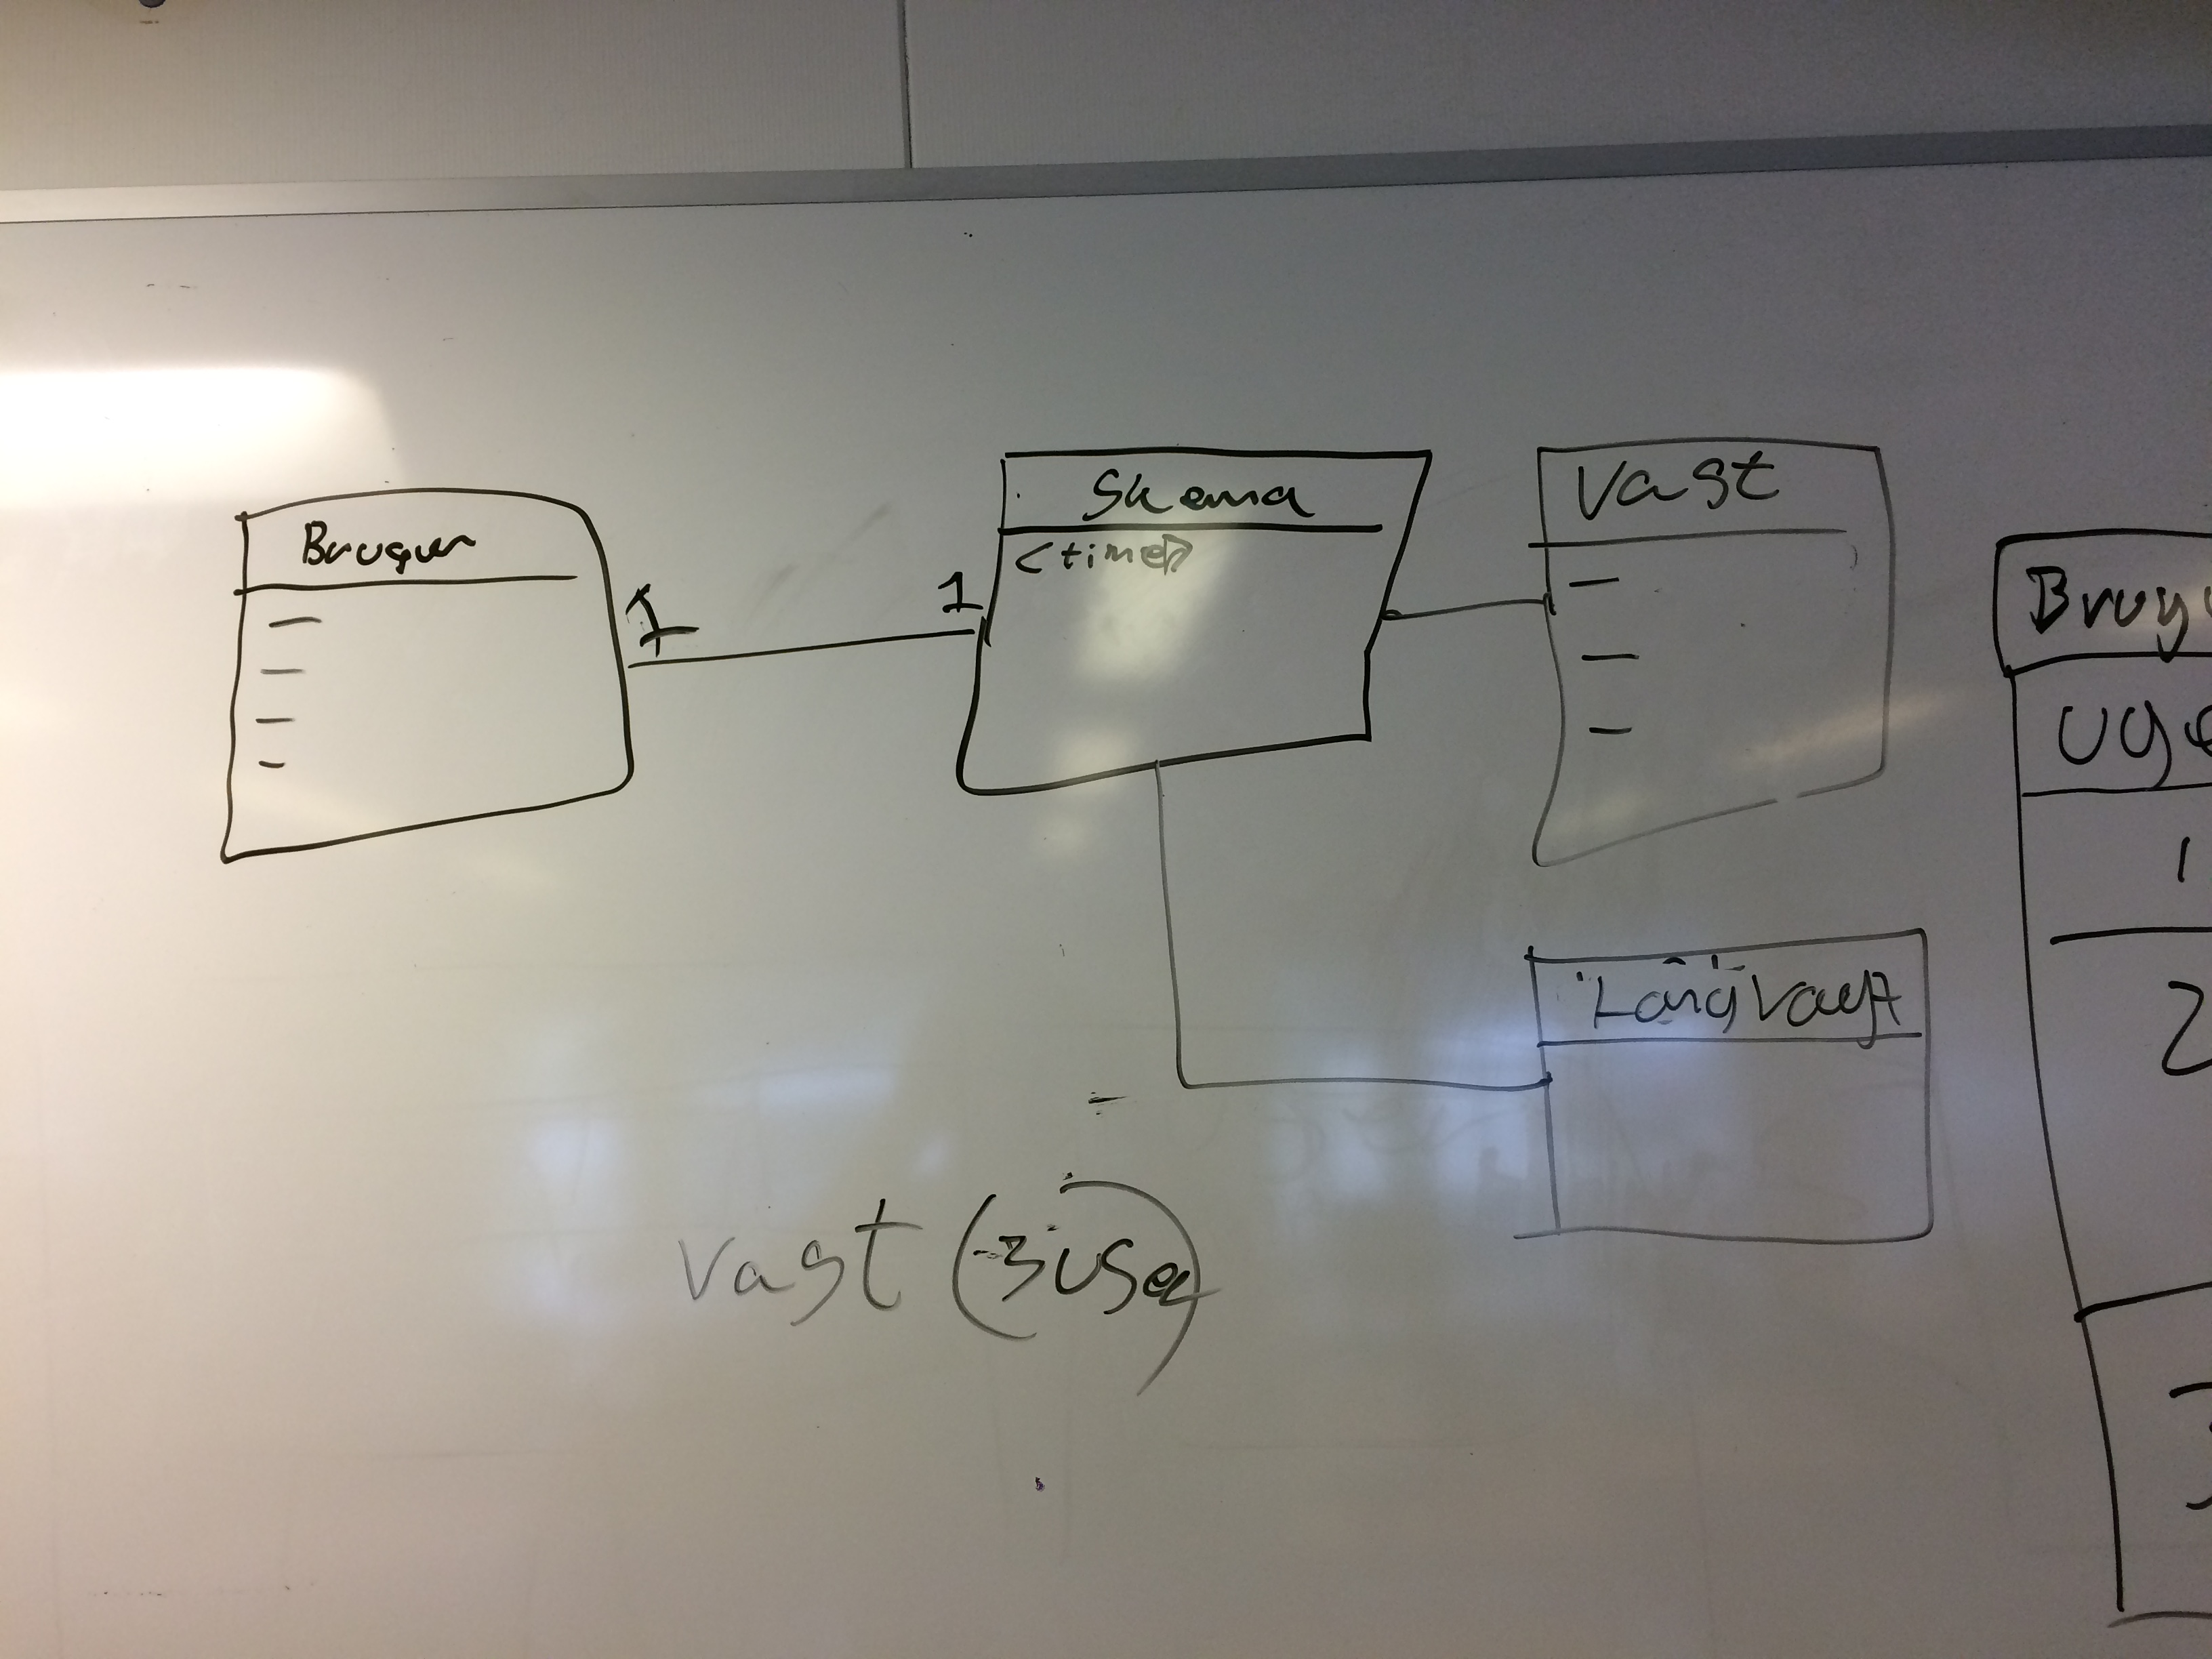 Bruger
1
1
Skema
<time>
Vagt
Lang Vagt
Vagt (
Bruge
Uge
1
2
3